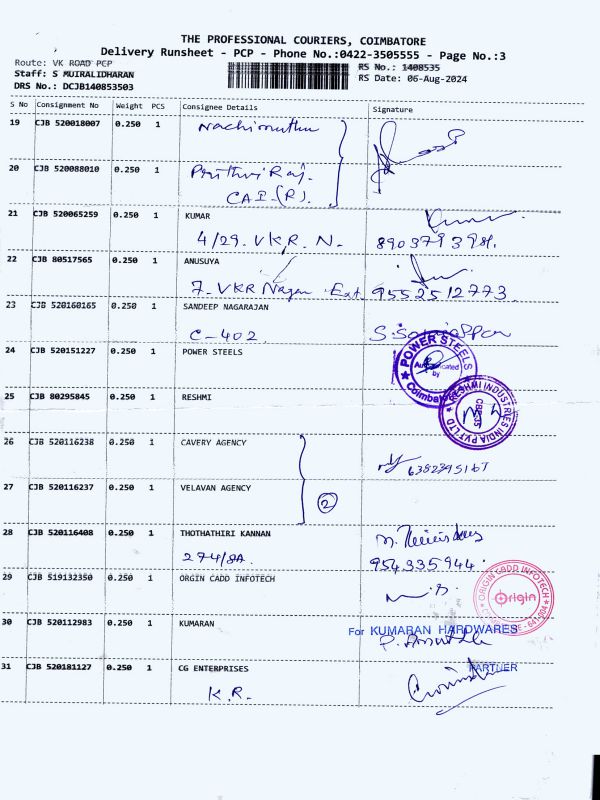 THE PROFESSIONAL COURIERS, COIMBATORE
Delivery Runsheet - PCP - Phone No.:0422-3505555 - Page No.:3
Route: VK ROAD PCP
RS No.: 1408535
Staff: S MUIRALIDHARAN
RS Date: 06-Aug-2024
DRS No.: DCJB140853503
S No Consignment No Weight PCS Consignee Details Signature
19 CJB 520018007 0.250 1 Nachimuthu
20 CJB 520088010 0.250 1 Prithvi Raj.
CAI (R).
21 CJB 520065259 0.250 1 KUMAR Kumar
4/29. V.K.R. N.
22 CJB 80517565 0.250 1 ANUSUYA
7. VKR Nagar Ext. 9552512773.
23 CJB 520160165 0.250 1 SANDEEP NAGARAJAN
C-402
24 CJB 520151227 0.250 1 POWER STEELS
POWER STEELS
Authenticated
by
Coimbatore
25 CJB 80295845 1 RESHMI
RESHMI INDUSTRIES INDIA PVT LTD
26 CJB 520116238 0.250 1 CAVERY AGENCY
27 CJB 520116237 0.250 1 VELAVAN AGENCY
2
28 CJB 520116408 0.250 1 THOTHATHIRI KANNAN
274/8A. 954335944.
29 CJB 519132350 0.250 1 ORGIN CADD INFOTECH
ORIGIN CADD INFOTECH
Origin
30 CJB 520112983 0.250 1 KUMARAN
For KUMARAN HARDWARES
31 CJB 520181127 0.250 1 CG ENTERPRISES PARTNER
K.R.